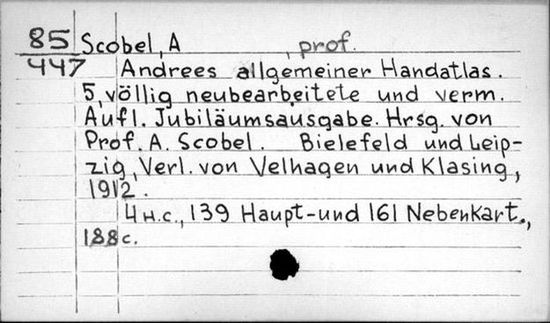 85 Scobel, A , prof.
447 Andrees allgemeiner Handatlas.
5, völlig neubearbeitete und verm.
Aufl. Jubiläumsausgabe. Hrsg. von
Prof. A. Scobel. Bielefeld und Leip-
zig, Verl. von Velhagen und Klasing,
1912.
4 н.с., 139 Haupt-und 161 Nebenkart.,
188 с.